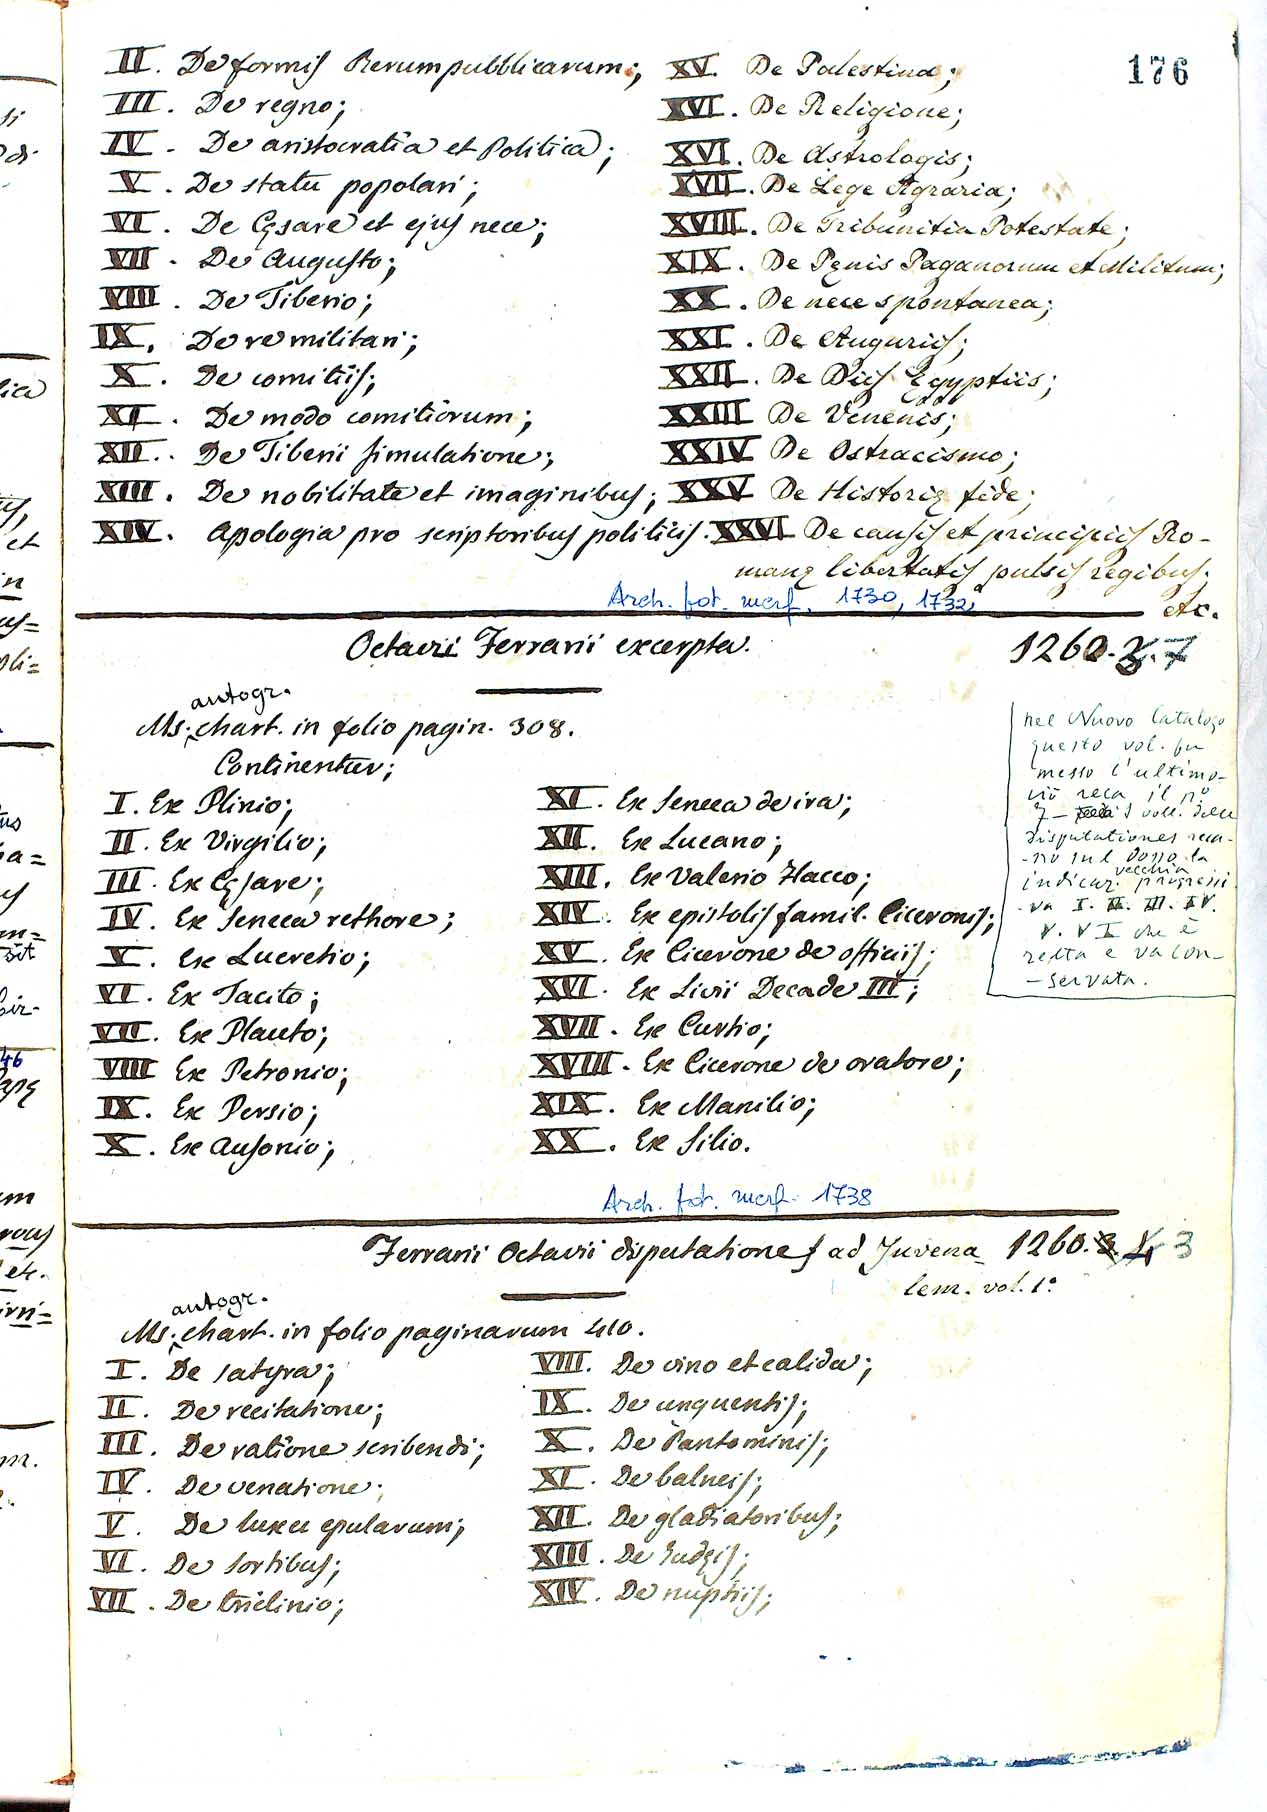 176
II. De formis Rerumpubblicarum;
III. De regno;
IV. De aristocratia et Politica;
V. De statu popolari;
VI. De Cęsare et ejus nece;
VII. De Augusto;
VIII. De Tiberio;
IX. De re militari;
X. De comitiis;
XI. De modo comitiorum;
XII. De Tiberii simulatione;
XIII. De nobilitate et imaginibus;
XIV. Apologia pro scriptoribus politicis.
XV. De Palestina;
XVI. De Religione;
XVI. De Astrologis;
XVII. De Lege Agraria;
XVIII. De Tribunitia Potestate;
XIX. De Pęnis Paganorum et Militum;
XX. De nece spontanea;
XXI. De Auguriis;
XXII. De Diis Egyptiis;
XXIII De Venenis;
XXIV De Ostracismo;
XXV De Historię fide;
XXVI De causis et principiis Ro-
manę libertatis pulsis regibus;
etc.
Arch. fot. mcrf. 1730, 1732,
Octavii Ferrarii excerpta.
1260. 7
autogr.
Ms. chart. in folio pagin. 308.
Continentur;
I. Ex Plinio;
II. Ex Virgilio;
III. Ex Cęsare;
IV. Ex Seneca rethore;
V. Ex Lucretio;
VI. Ex Tacito;
VII. Ex Plauto;
VIII Ex Petronio;
IX. Ex Persio;
X. Ex Ausonio;
XI. Ex Seneca de ira;
XII. Ex Lucano;
XIII. Ex Valerio Flacco;
XIV. Ex epistolis famil. Ciceronis;
XV. Ex Cicerone de officiis;
XVI. Ex Livii Decade III;
XVII. Ex Curtio;
XVIII. Ex Cicerone de oratore;
XIX. Ex Manilio;
XX. Ex Silio.
nel Nuovo Catalogo
questo vol. fu
messo l'ultimo-
ciò reca il no
7 - i voll. delle
disputationes reca-
-no sul dosso la
vecchia
indicaz. progressi
-va I. II. III. IV.
V. VI che è
retta e va con-
-servata.
Arch. fot. mcrf. 1738
Ferrarii Octavii disputationes ad Juvena-
lem. vol. 1°
1260. 3
autogr.
Ms. chart. in folio paginarum 410.
I. De satyra;
II. De recitatione;
III. De ratione scribendi;
IV. De venatione;
V. De luxu epularum;
VI. De sortibus;
VII. De triclinio;
VIII. De vino et calida;
IX. De unguentis;
X. De Pantominis;
XI. De balneis;
XII. De gladiatoribus;
XIII. De Judęis;
XIV. De nuptiis;